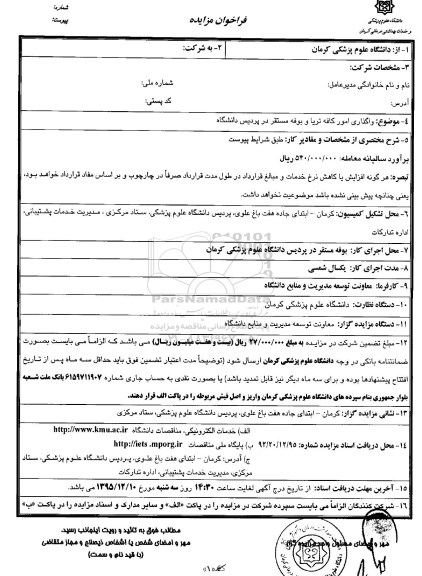 شماره:
پیوست:
فراخوان مزایده
دانشگاه علوم پزشکی
و خدمات بهداشتی درمانی کرمان
۱- از: دانشگاه علوم پزشکی کرمان
۲- به شرکت:
۳- مشخصات شرکت:
نام و نام خانوادگی مدیرعامل:
شماره ملی:
آدرس:
کد پستی:
۴- موضوع: واگذاری امور کافه تریا و بوفه مستقر در پردیس دانشگاه
۵- شرح مختصری از مشخصات و مقادیر کار: طبق شرایط پیوست
برآورد سالیانه معامله: ۵۴۰/۰۰۰/۰۰۰ ریال
تبصره: هر گونه افزایش یا کاهش نرخ خدمات و مبالغ قرارداد در طول مدت قرارداد صرفاً در چارچوب و بر اساس مفاد قرارداد خواهد بود،
یعنی چنانچه پیش بینی نشده باشد موضوعیت نخواهد داشت.
۶- محل تشکیل کمیسیون: کرمان - ابتدای جاده هفت باغ علوی، پردیس دانشگاه علوم پزشکی، ستاد مرکزی، مدیریت خدمات پشتیبانی،
اداره تدارکات
۷- محل اجرای کار: بوفه مستقر در پردیس دانشگاه علوم پزشکی کرمان
۸- مدت اجرای کار: یکسال شمسی
۹- کارفرما: معاونت توسعه مدیریت و منابع دانشگاه
۱۰- دستگاه نظارت: دانشگاه علوم پزشکی کرمان
۱۱- دستگاه مزایده گزار: معاونت توسعه مدیریت و منابع دانشگاه
۱۲- مبلغ تضمین شرکت در مزایده به مبلغ ۲۷/۰۰۰/۰۰۰ ریال (بیست و هفت میلیون ریال) می باشد که الزاماً می بایست بصورت
ضمانتنامه بانکی در وجه دانشگاه علوم پزشکی کرمان ارسال شود (توضیحاً مدت اعتبار تضمین فوق باید حداقل سه ماه پس از تاریخ
افتتاح پیشنهادها بوده و برای سه ماه دیگر نیز قابل تمدید باشد) یا بصورت نقدی به حساب جاری شماره ۶۱۵۹۷۱۱۹۰۷ بانک ملت شعبه
بلوار جمهوری بنام سپرده های دانشگاه علوم پزشکی کرمان واریز و اصل فیش مربوطه را در پاکت الف قرار دهند.
۱۳- نشانی مزایده گزار: کرمان - ابتدای جاده هفت باغ علوی، پردیس دانشگاه علوم پزشکی، ستاد مرکزی
۱۴- محل دریافت اسناد مزایده شماره: ۹۲/۲۰/۱۲/۹۵
الف) خدمات الکترونیکی، مناقصات دانشگاه http://www.kmu.ac.ir
ب) پایگاه ملی مناقصات http://iets.mporg.ir
ج) آدرس: کرمان - ابتدای هفت باغ علوی، پردیس دانشگاه علوم پزشکی، ستاد
مرکزی، مدیریت خدمات پشتیبانی، اداره تدارکات
۱۵- آخرین مهلت دریافت اسناد: از تاریخ درج آگهی لغایت ساعت ۱۴:۳۰ روز سه شنبه مورخ ۱۳۹۵/۱۲/۱۰ می باشد.
۱۶- شرکت کنندگان الزاماً می بایست سپرده شرکت در مزایده را در پاکت «الف» و سایر مدارک و اسناد مزایده را در پاکت «ب»
مطالب فوق به تائید و رویت اینجانب رسید.
مهر و امضای شخص یا اشخاص ذیصلاح و مجاز متقاضی
(با قید نام و سمت)